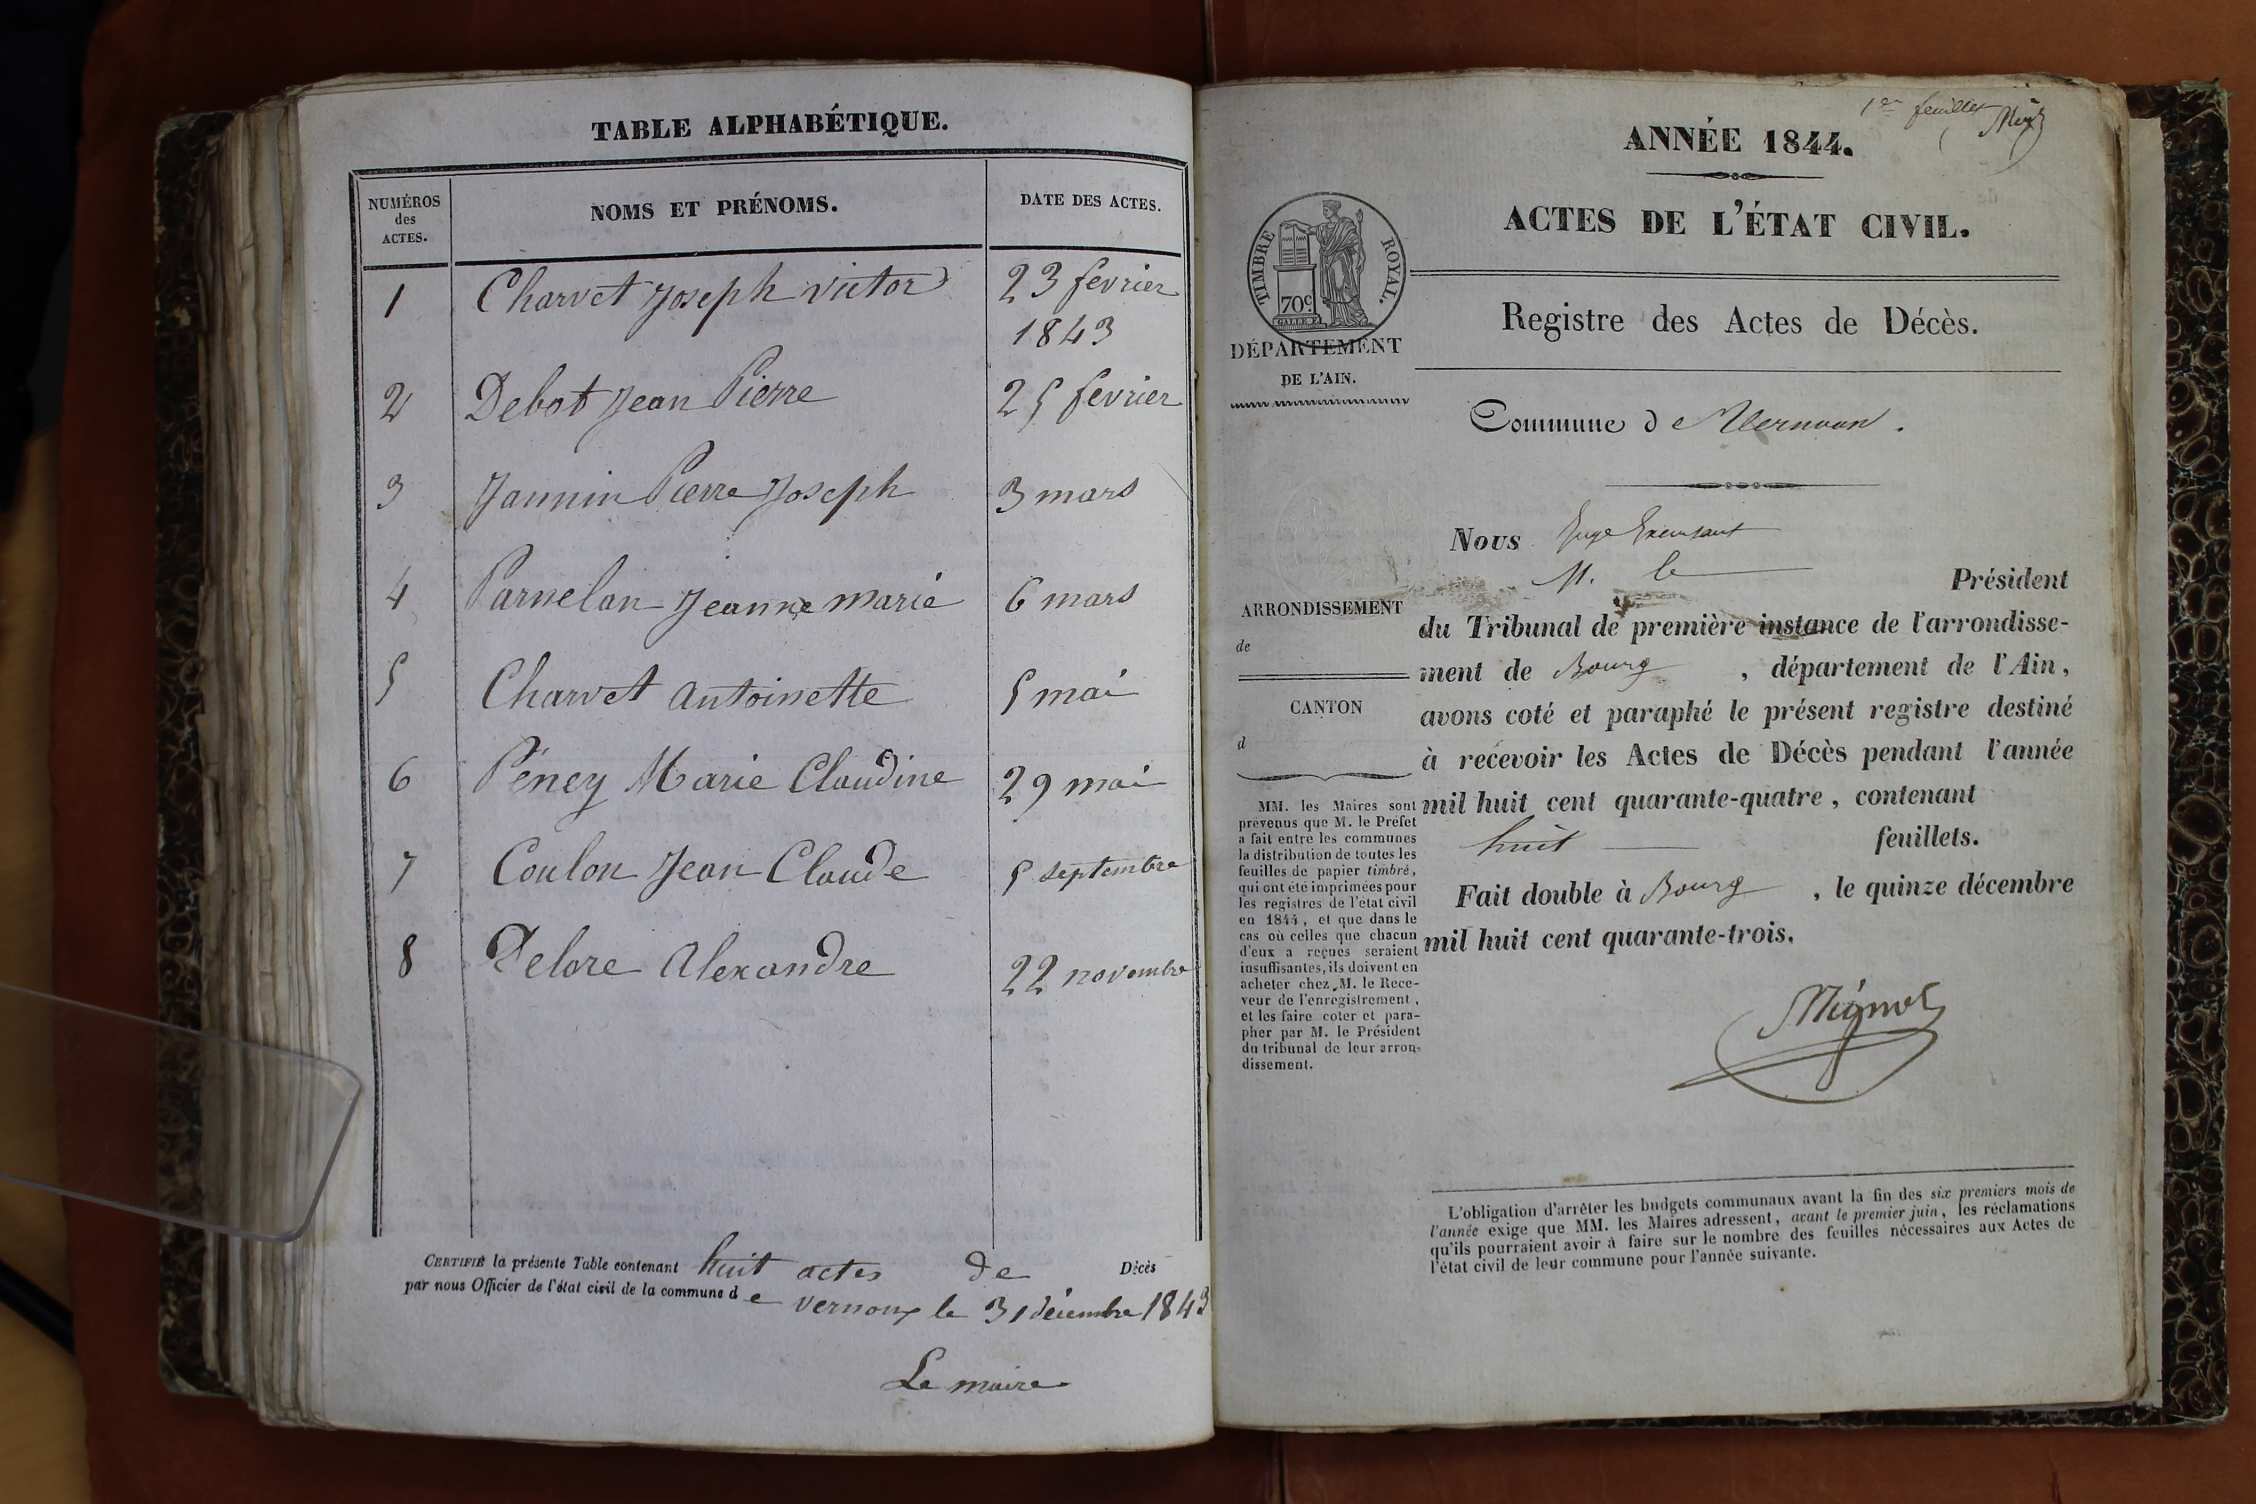 TABLE ALPHABÉTIQUE.
NUMÉROS
des
ACTES.
NOMS ET PRÉNOMS.
DATE DES ACTES.
1 Charvet Joseph victor 23 fevrier
1843
2 Debot Jean Pierre 25 fevrier
3 Jannin Pierre Joseph 3 mars
4 Parnelan Jeanne marie 6 mars
5 Charvet Antoinette 5 mai
6 Péney Marie Claudine 29 mai
7 Coulon Jean Claude 5 septembre
8 Delore Alexandre 22 novembre
CERTIFIÉ la présente Table contenant huit actes de Décès
par nous Officier de l'état civil de la commune de vernoux le 31 décembre 1843
Le maire
1er feuillet
ANNÉE 1844.
ACTES DE L'ÉTAT CIVIL.
TIMBRE ROYAL.
70c
Registre des Actes de Décès.
DÉPARTEMENT
DE L'AIN.
Commune de
Nous Juge
M. le Président
du Tribunal de première instance de l'arrondisse-
ment de Bourg, département de l'Ain,
avons coté et paraphé le présent registre destiné
à recevoir les Actes de Décès pendant l'année
mil huit cent quarante-quatre, contenant
huit feuillets.
Fait double à Bourg, le quinze décembre
mil huit cent quarante-trois.
Mignot
ARRONDISSEMENT
de
CANTON
d
MM. les Maires sont
prévenus que M. le Préfet
a fait entre les communes
la distribution de toutes les
feuilles de papier timbré,
qui ont été imprimées pour
les registres de l'état civil
en 1844, et que dans le
cas où celles que chacun
d'eux a reçues seraient
insuffisantes, ils doivent en
acheter chez M. le Rece-
veur de l'enregistrement,
et les faire coter et para-
pher par M. le Président
du tribunal de leur arron-
dissement.
L'obligation d'arrêter les budgets communaux avant la fin des six premiers mois de
l'année exige que MM. les Maires adressent, avant le premier juin, les réclamations
qu'ils pourraient avoir à faire sur le nombre des feuilles nécessaires aux Actes de
l'état civil de leur commune pour l'année suivante.